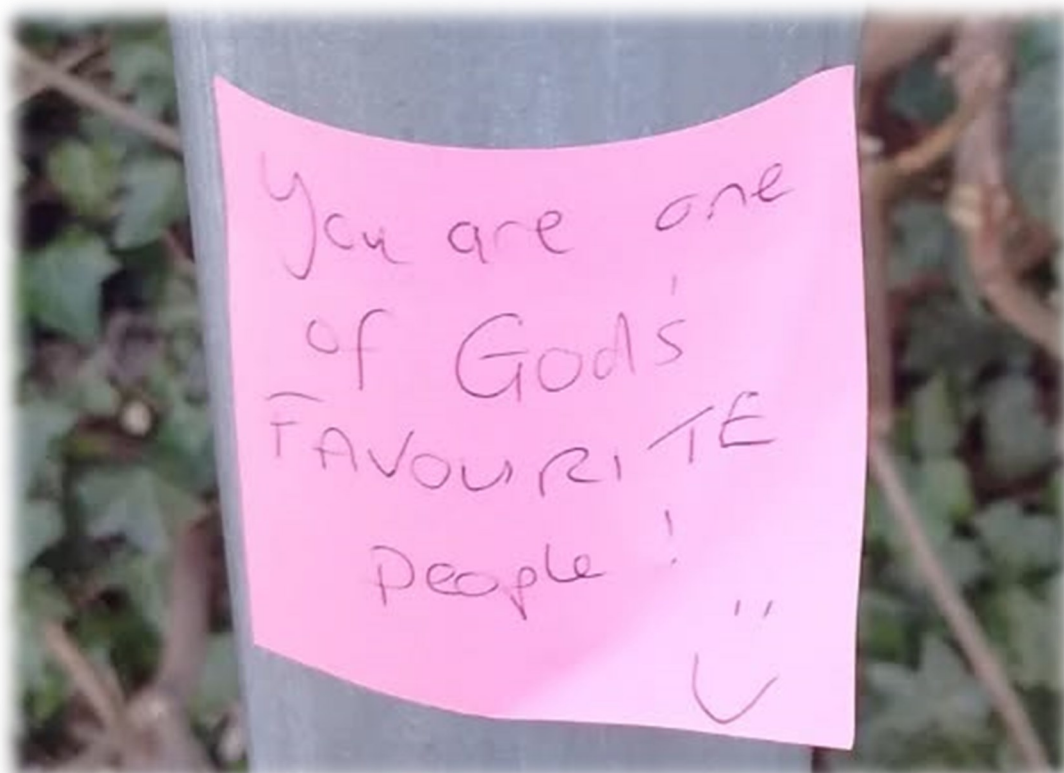 You are one
of God's
FAVOURITE
people !